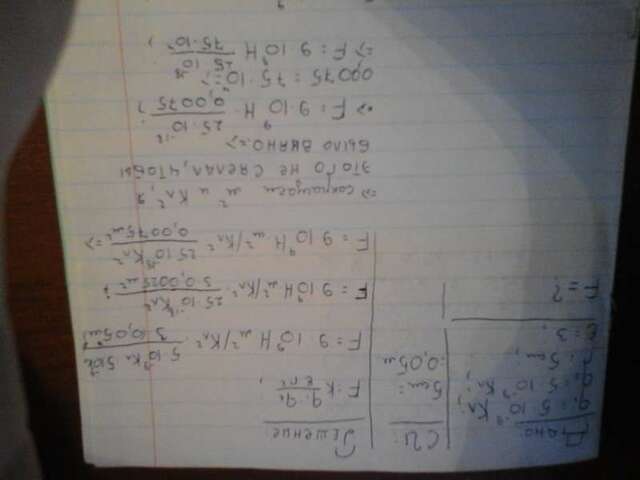 Дано:
q₁ = 5·10⁻⁹ Кл;
q₂ = 5·10⁻⁹ Кл;
r = 5см;
ε = 3;
F = ?
СИ:
5см =
= 0,05м
Решение:
F = k q·q₁/εr²;
F = 9·10⁹ Н·м²/Кл² · 5·10⁻⁹Кл·5·10⁻⁹/3·0,05м²;
F = 9·10⁹ Н·м²/Кл² · 25·10⁻¹⁸ Кл²/3·0,0025м²;
F = 9·10⁹ Н·м²/Кл² · 25·10⁻¹⁸ Кл²/0,0075м² =>
=> сокращаем м² и Кл²,
этого не сделал, чтобы
было видно =>
=> F = 9·10⁹ Н · 25·10⁻¹⁸/0,0075;
0,0075 = 75·10⁻⁴ =>
=> F = 9·10⁹ Н 25·10⁻¹⁸/75·10⁻⁴;